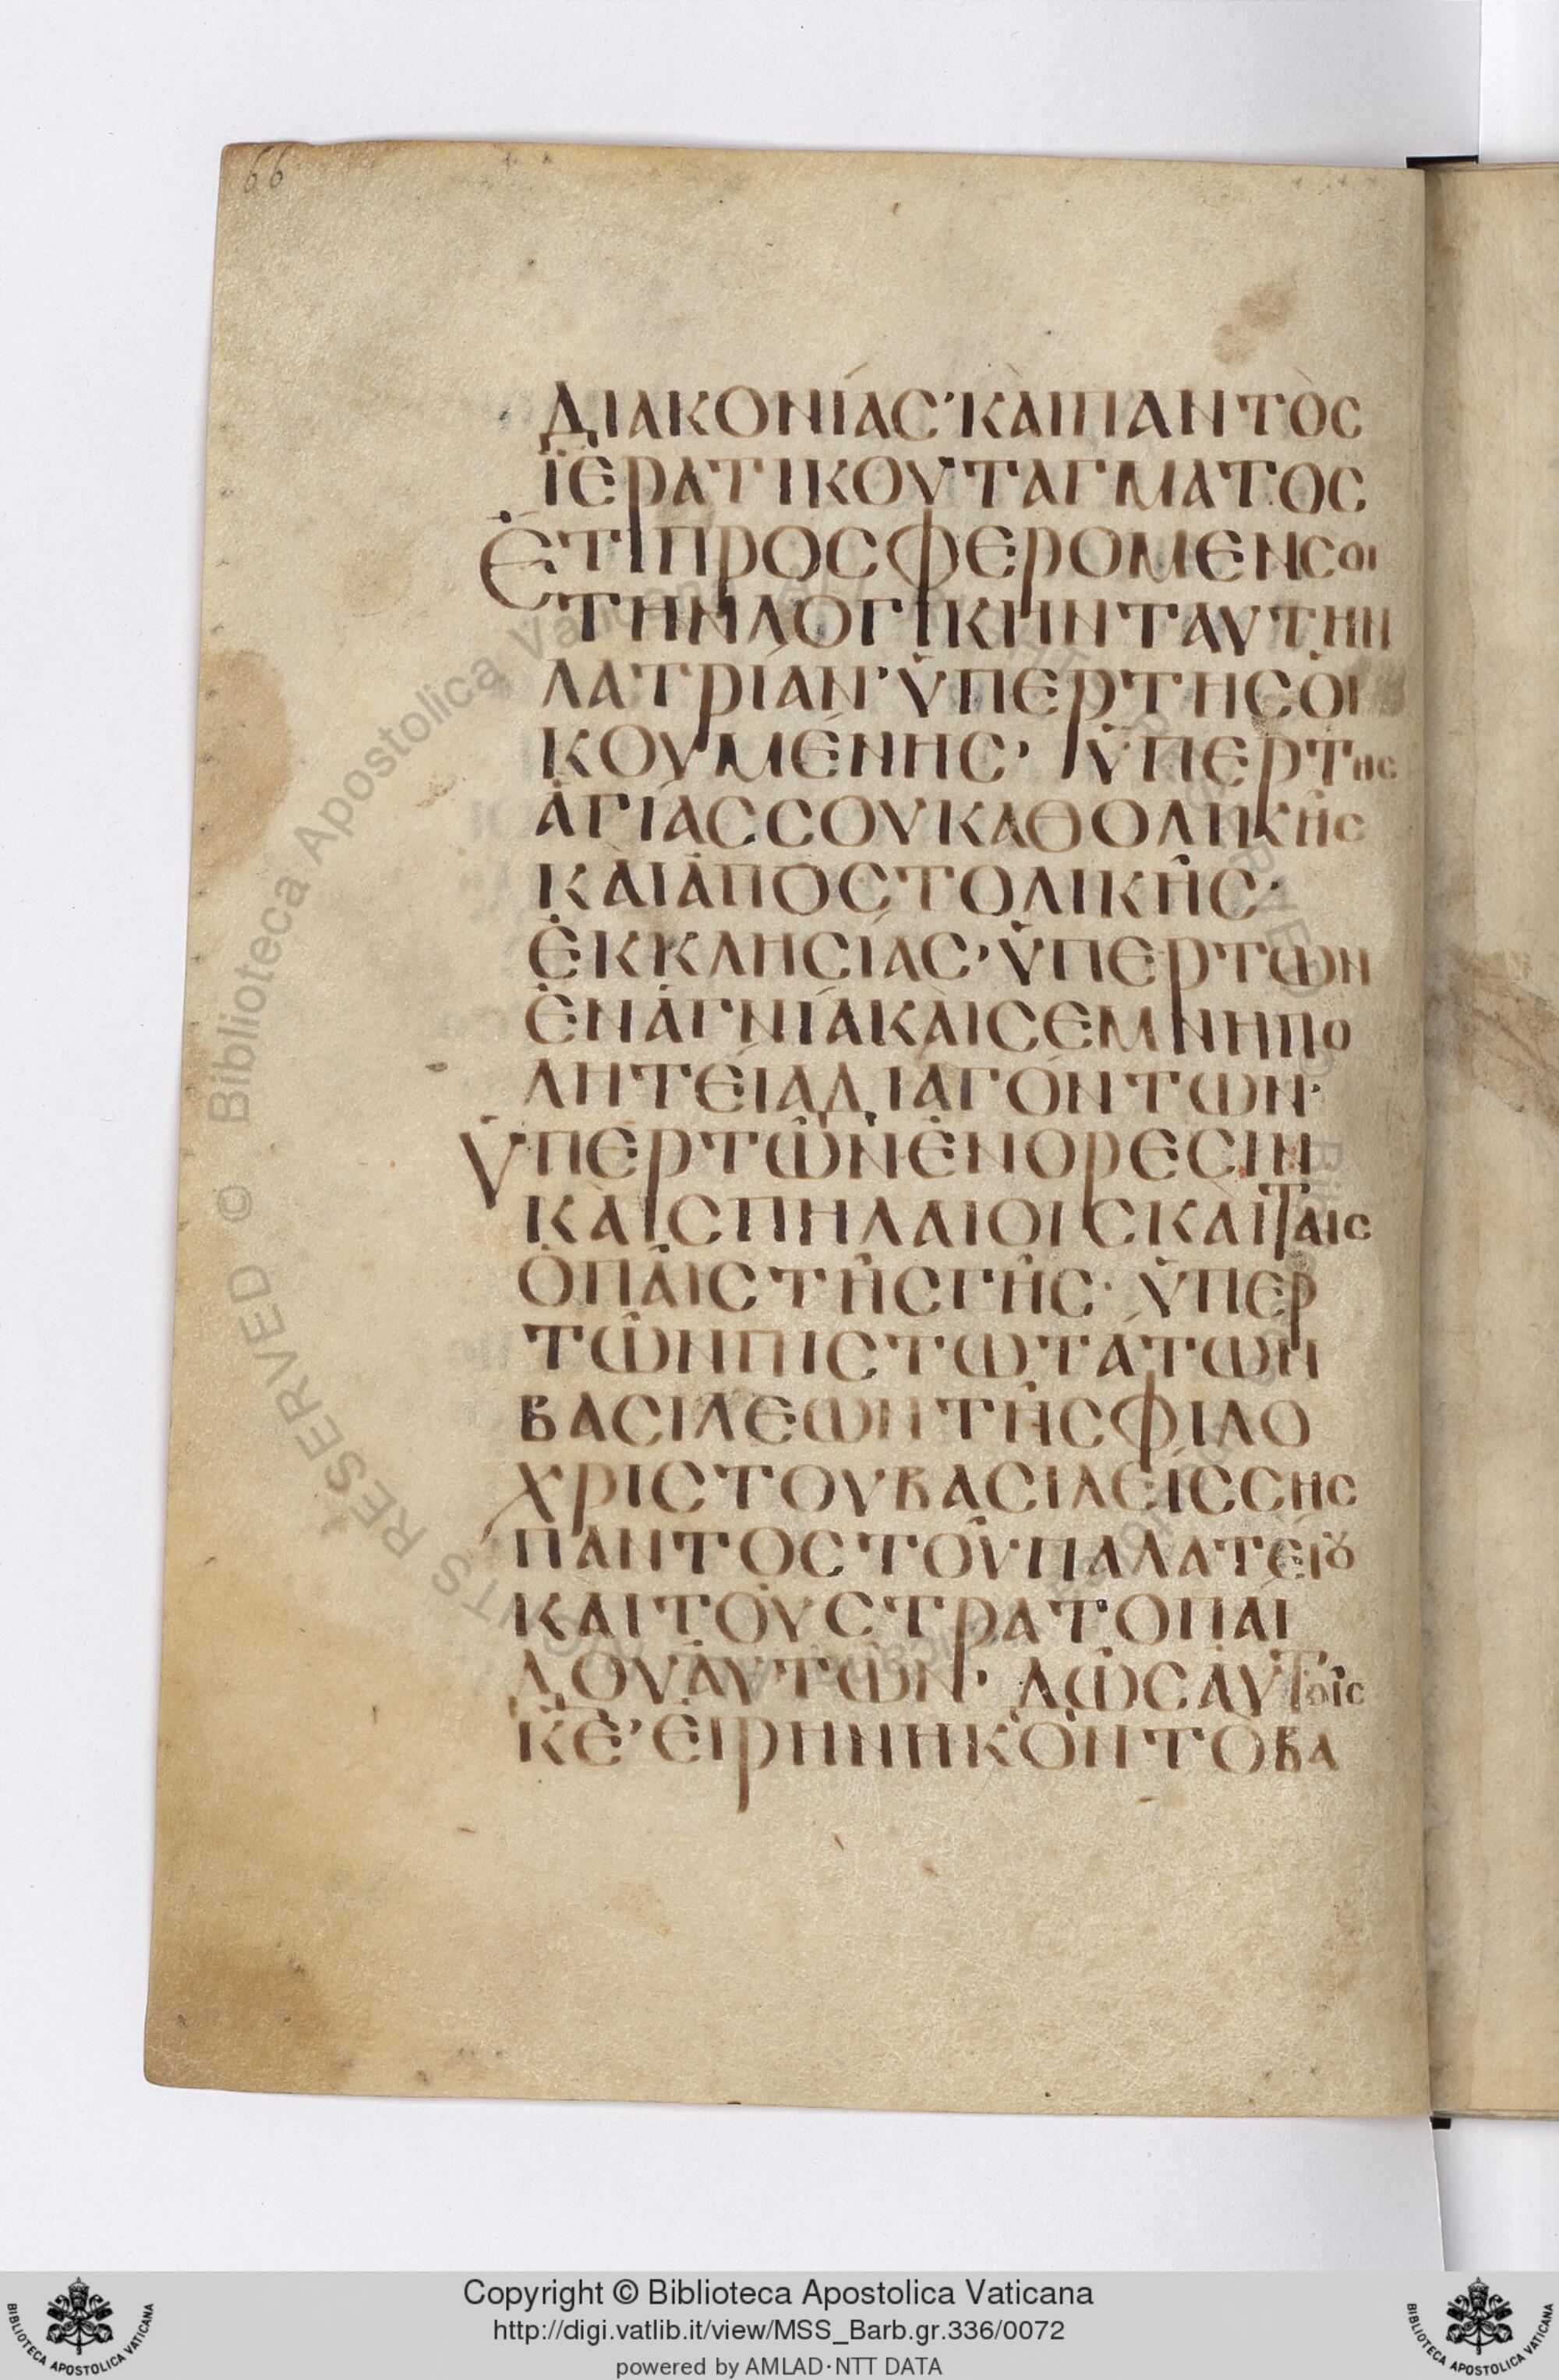 66
ΔΙΑΚΟΝΊΑС’ΚΑῚΠΑΝΤῸС
ΪΕΡΑΤΙΚΟΥΤΑΓΜΑΤΟС
ΕΤΙΠΡΟСΦΕΡΟΜΕΝСΟΙ
ΤΗΝΛΟΓΙΚΗΝΤΑΥΤΗΝ
ΛΑΤΡΙΑΝ’ΥΠΕΡΤΗСΟΙ
ΚΟΥΜΕΝΗС’ ΥΠΕΡΤΗС
ΑΓΙΑССΟΥΚΑΘΟΛΗΚΗС
ΚΑΙΑΠΟСΤΟΛΙΚΗС·
ΕΚΚΛΗСΙΑС’ΥΠΕΡΤΩΝ
ΕΝΑΓΝΙΑΚΑΙСΕΜΝΗΠΟ
ΛΗΤΕΙΑΔΙΑΓΟΝΤΩΝ·
ΥΠΕΡΤΩΝΕΝΟΡΕСΙΝ
ΚΑΙСΠΗΛΑΙΟΙСΚΑΙΤΑΙС
ΟΠΑΙСΤΗСΓΗС· ΥΠΕΡ
ΤΩΝΠΙСΤΩΤΑΤΩΝ
ΒΑСΙΛΕΩΝΤΗСΦΙΛΟ
ΧΡΙСΤΟΥΒΑСΙΛΕΙССΗС
ΠΑΝΤΟСΤΟΥΠΑΛΑΤΕΙȢ
ΚΑΙΤΟΥСΤΡΑΤΟΠΑΙ
ΔΟΥΑΥΤΩΝ· ΔΩСΑΥΤΟΙС
ΚΕ’ΕΙΡΗΝΗΚΟΝΤΟΒΑ
© Biblioteca Apostolica Vaticana
RIGHTS RESERVED
Copyright © Biblioteca Apostolica Vaticana
http://digi.vatlib.it/view/MSS_Barb.gr.336/0072
powered by AMLAD·NTT DATA
BIBLIOTECA APOSTOLICA VATICANA
BIBLIOTECA APOSTOLICA VATICANA